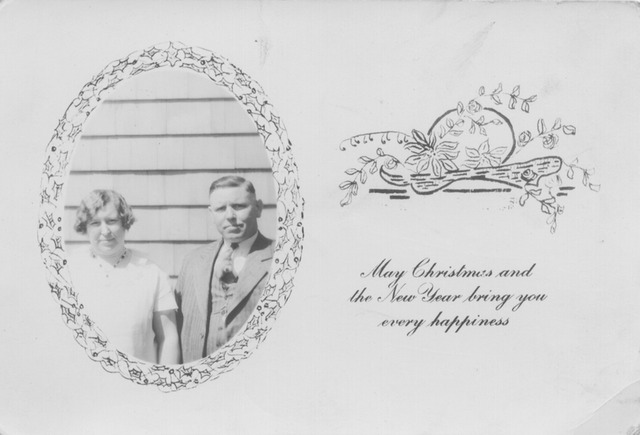 May Christmas and
the New Year bring you
every happiness